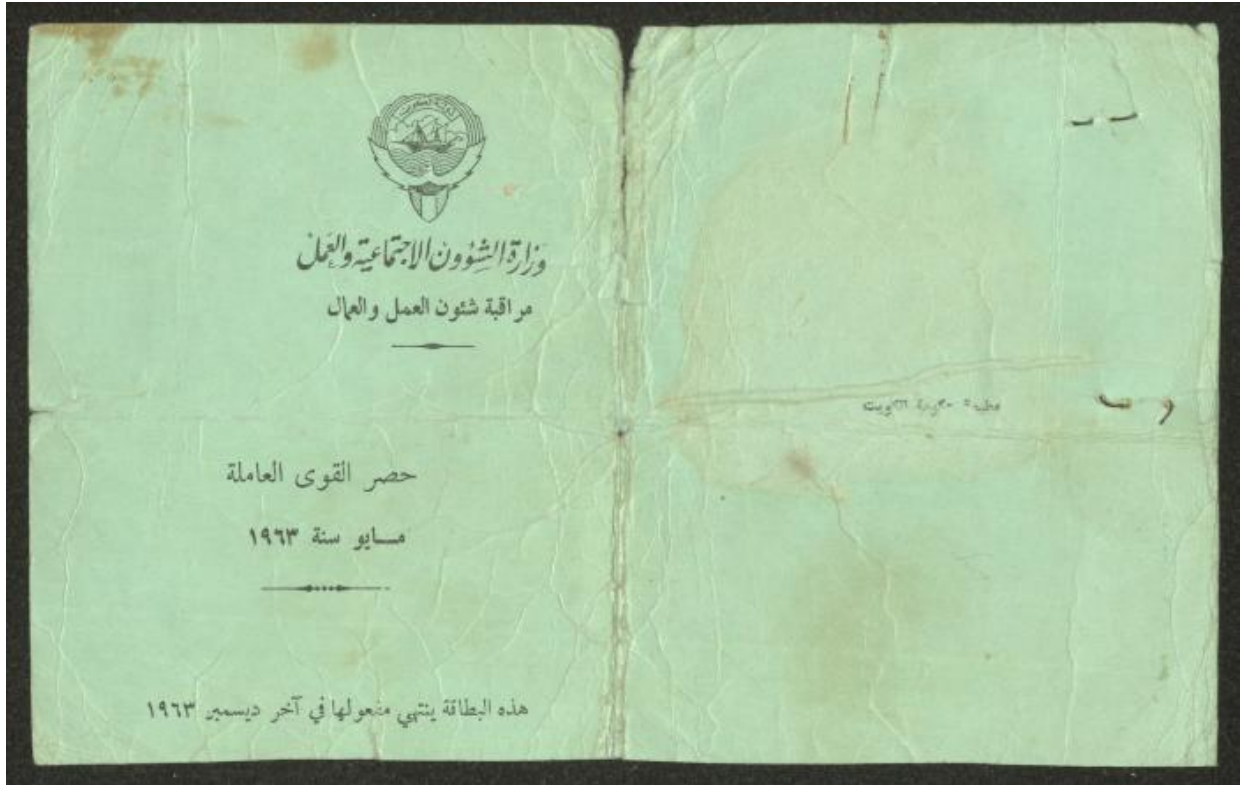 دولة الكويت
وزارة الشؤون الاجتماعية والعمل
مراقبة شئون العمل والعمال
حصر القوى العاملة
مايو سنة ١٩٦٣
هذه البطاقة ينتهي مفعولها في آخر ديسمبر ١٩٦٣
مطبعة حكومة الكويت